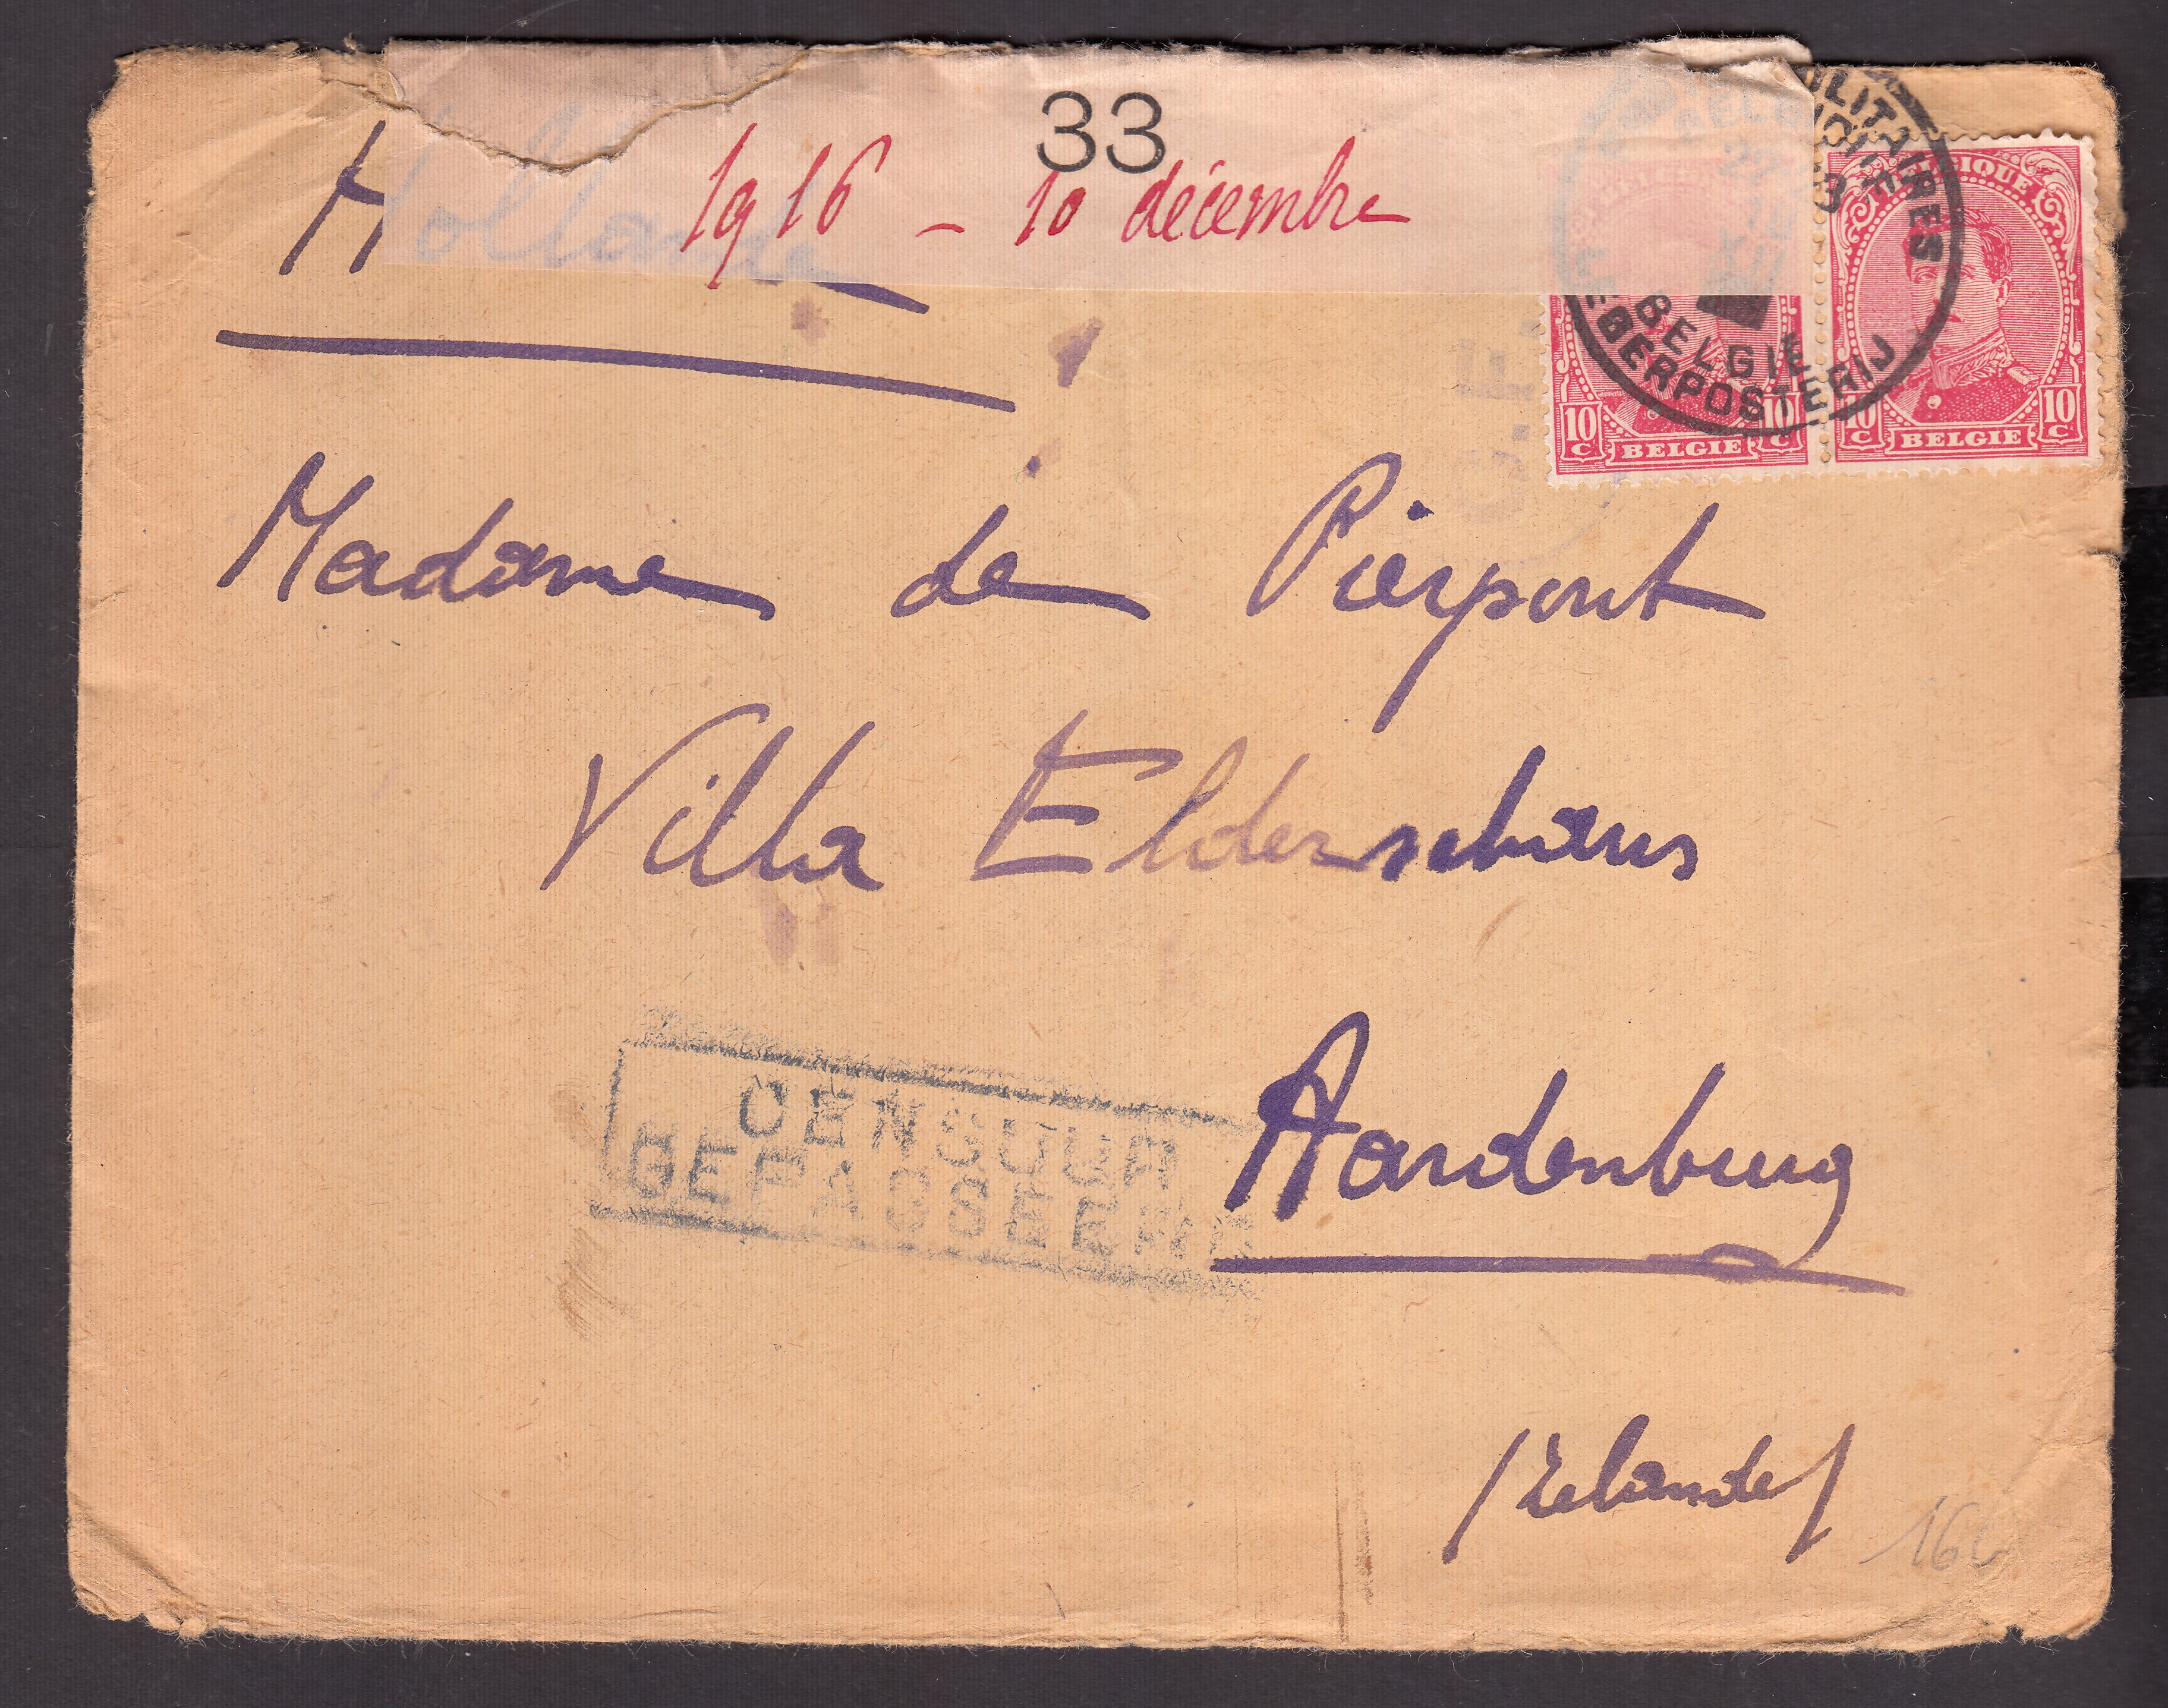 33
Hollande
1916 - 10 décembre
MILITAIRES
BELGIQUE
BELGIË
LEGERPOSTERIJ
10 C BELGIE 10 C
10 C BELGIE 10 C
Madame de Pierpont
Villa Elderschans
Aardenburg
CENSUUR
GEPASSEERD
(Zélande)